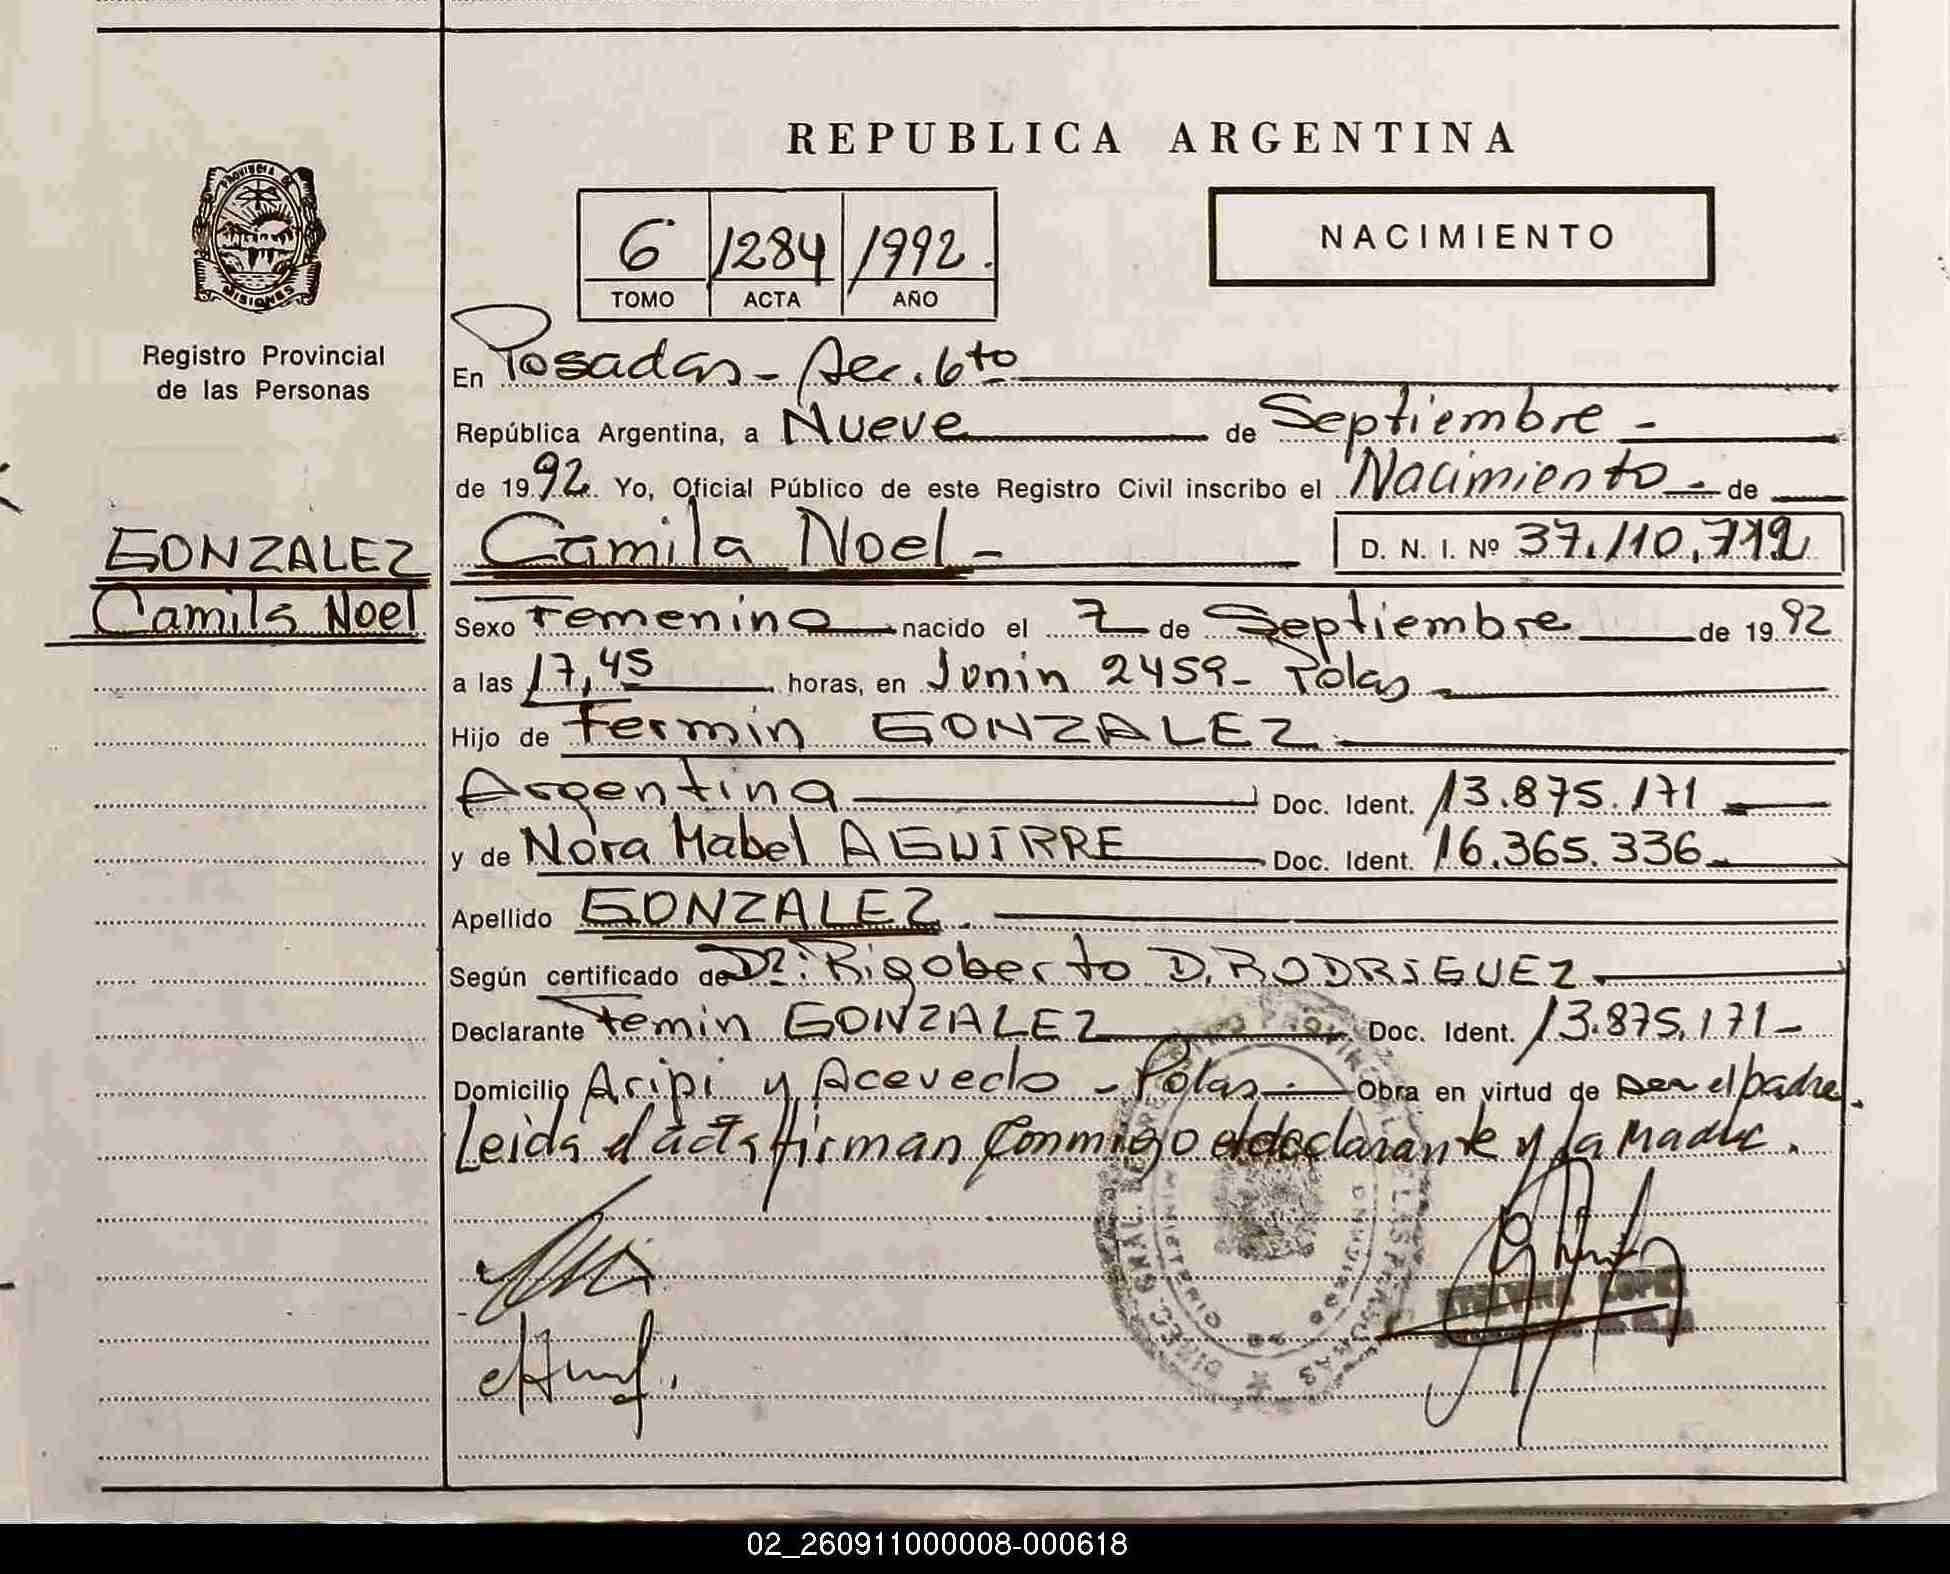 REPUBLICA ARGENTINA
PROVINCIA DE
MISIONES
Registro Provincial
de las Personas
6 1284 1992.
TOMO ACTA AÑO
NACIMIENTO
En Posadas - Sec. 6to
República Argentina, a Nueve de Septiembre -
de 1992. Yo, Oficial Público de este Registro Civil inscribo el Nacimiento - de
GONZALEZ
Camila Noel
Camila Noel - D. N. I. Nº 37.110.712
Sexo Femenino nacido el 7 de Septiembre de 1992
a las 17,45 horas, en Junin 2459 - Pdas
Hijo de Fermin GONZALEZ
Argentina Doc. Ident. 13.875.171
y de Nora Mabel AGUIRRE Doc. Ident. 16.365.336
Apellido GONZALEZ
Según certificado de Dr: Rigoberto D. RODRIGUEZ
Declarante Femin GONZALEZ Doc. Ident. 13.875.171 -
Domicilio Aripi y Acevedo - Pdas - Obra en virtud de ser el padre.
Leida el acta firman conmigo el declarante y la madre.
LOPEZ
02_260911000008-000618